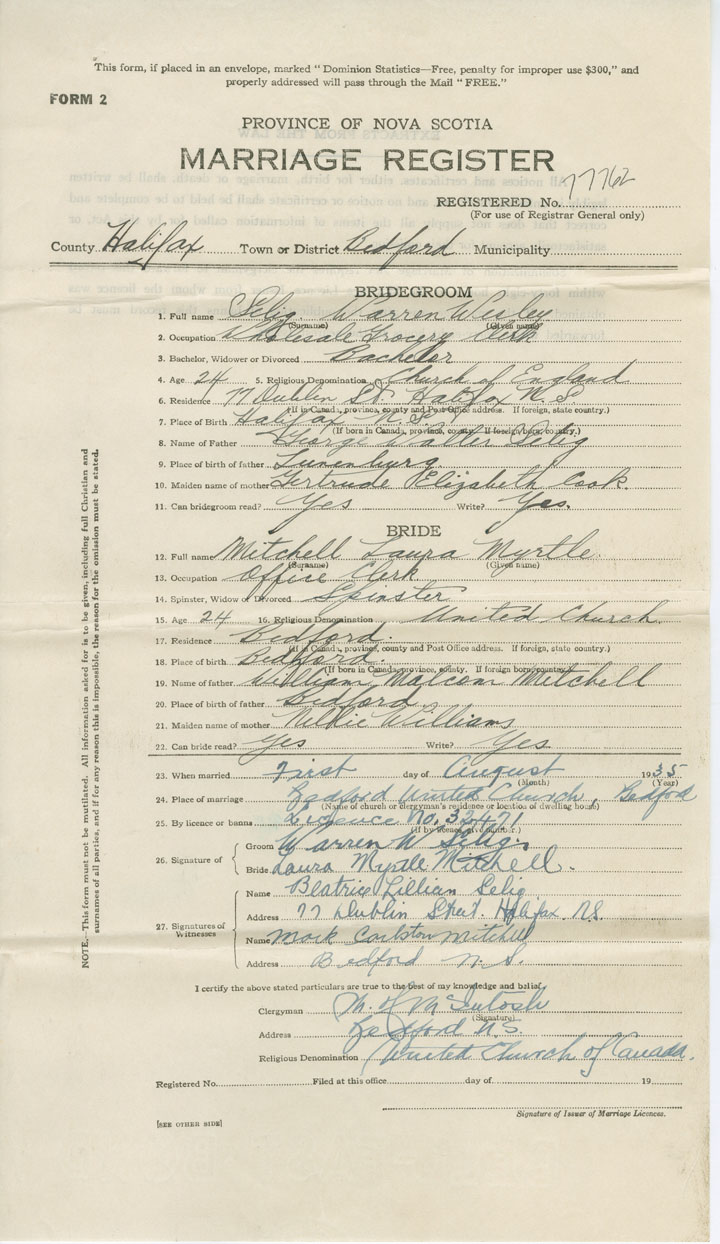 "This form, if placed in an envelope, marked "Dominion Statistics—Free, penalty for improper use $300," and
properly addressed will pass through the Mail "FREE."
FORM 2
PROVINCE OF NOVA SCOTIA
MARRIAGE REGISTER
REGISTERED No. 77762
(For use of Registrar General only)
County Halifax Town or District Bedford Municipality
BRIDEGROOM
1. Full name Selig Warren Wesley
(Surname) (Given name)
2. Occupation Wholesale Grocery Clerk
3. Bachelor, Widower or Divorced Bachelor
4. Age 24 5. Religious Denomination Church of England
6. Residence 77 Dublin St. Halifax N.S.
(If in Canada, province, county and Post Office address. If foreign, state country.)
7. Place of Birth Halifax N.S.
(If born in Canada, province, county. If foreign born, country.)
8. Name of Father George Walter Selig
9. Place of birth of father Lunenburg
10. Maiden name of mother Gertrude Elizabeth Cook.
11. Can bridegroom read? Yes Write? Yes.
BRIDE
12. Full name Mitchell Laura Myrtle.
(Surname) (Given name)
13. Occupation Office Clerk
14. Spinster, Widow or Divorced Spinster
15. Age 24 16. Religious Denomination United Church.
17. Residence Bedford.
(If in Canada, province, county and Post Office address. If foreign, state country.)
18. Place of birth Bedford.
(If born in Canada, province, county. If foreign born, country.)
19. Name of father William Malcom Mitchell
20. Place of birth of father Bedford
21. Maiden name of mother Nellie Williams
22. Can bride read? Yes Write? Yes
23. When married First day of August 1935
(Month) (Year)
24. Place of marriage Bedford United Church, Bedford
(Name of church or clergyman's residence or location of dwelling house)
25. By licence or banns Licence No. 32471
(If by licence give number.)
26. Signature of
Groom Warren W Selig.
Bride Laura Myrtle Mitchell.
27. Signatures of Witnesses
Name Beatrice Lillian Selig
Address 77 Dublin Street. Halifax N.S.
Name Mark Carlston Mitchell
Address Bedford N.S.
I certify the above stated particulars are true to the best of my knowledge and belief.
Clergyman McIntosh
(Signature)
Address Bedford N.S.
Religious Denomination United Church of Canada.
Registered No. Filed at this office day of 19
Signature of Issuer of Marriage Licences.
[SEE OTHER SIDE]
NOTE.—This form must not be mutilated. All information asked for is to be given, including full Christian and
surnames of all parties, and if for any reason this is impossible, the reason for the omission must be stated.